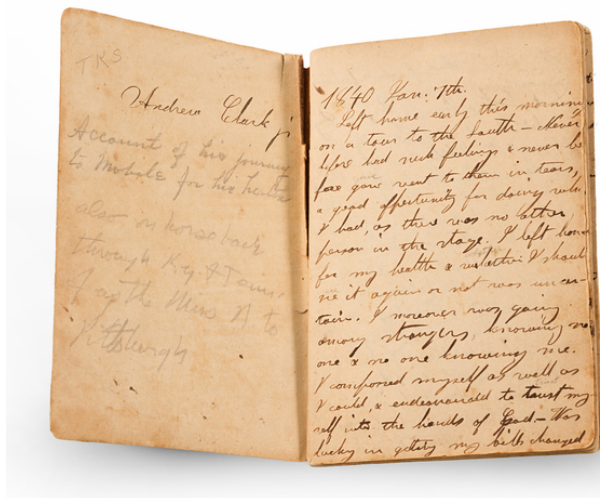 TKS
Andrew Clark jr
Account of his journey
to Mobile for his health
also on horseback
through Ky. & Tenn.
& up the Miss R to
Pittsburgh
1840 Jan. 7th.
Left home early this morning
on a tour to the South – Never
before had such feelings & never be
fore gave vent to them in tears,
a good opportunity for doing which
I had, as there was no other
person in the stage. I left home
for my health & whether I should
see it again or not was uncer-
tain. I moreover was going
among strangers, knowing no
one & no one knowing me.
I composed myself as well as
I could, & endeavoured to trust my-
self into the hands of God. – Was
lucky in getting my bills changed